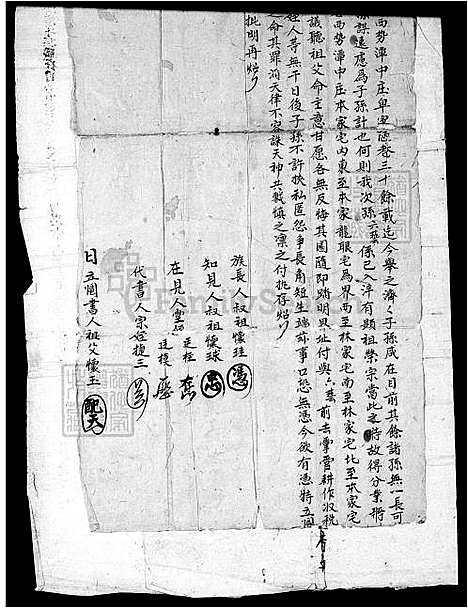 西勢潭中庄卑𫝑隱愁三十餘載迄今舉之濟々子孫咸在目前其餘諸孫無一長可
謀遠慮為子孫計也何則我次孫六藝係已入泮有顯祖榮宗當此之時故得分業將
西勢潭中庄本家宅內東至本家龍眼宅為界西至林家宅南至林家宅北至本家宅
議聽祖父命主意甘愿各無反悔其園隨即踏明界址付與六藝前去掌管耕作收稅
姪人等無干日後子孫不許挾私匿怨爭長角短生端茲事口恐無憑今欲有憑特立
之命其罪滔天律不容誅天神共戮慎之凜之付執存炤
批明再炤
族長人叔祖懷珪 憑
知見人叔祖懷球
在見人堂
代書人宗姪捷三
日立鬮書人祖父懷玉 配天